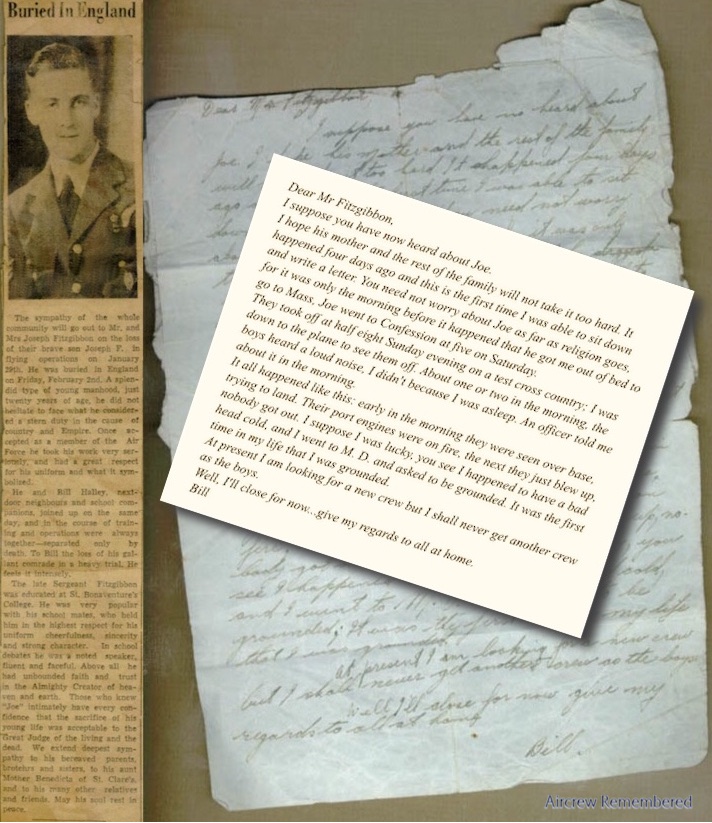 Buried In England
The sympathy of the whole
community will go out to Mr. and
Mrs Joseph Fitzgibbon on the loss
of their brave son Joseph F. in
flying operations on January
29th. He was buried in England
on Friday, February 2nd. A splen-
did type of young manhood, just
twenty years of age, he did not
hesitate to face what he consider-
ed a stern duty in the cause of
country and Empire. Once ac-
cepted as a member of the Air
Force he took his work very ser-
iously, and had a great respect
for his uniform and what it sym-
bolised.
He and Bill Halley, next-
door neighbours and school com-
panions, joined up on the same
day, and in the course of train-
ing and operations were always
together—separated only by
death. To Bill the loss of his gal-
lant comrade is a heavy trial. He
feels it intensely.
The late Sergeant Fitzgibbon
was educated at St. Bonaventure's
College. He was very popular
with his school mates, who held
him in the highest respect for his
uniform cheerfulness, sincerity
and strong character. In school
debates he was a noted speaker,
fluent and forceful. Above all he
had unbounded faith and trust
in the Almighty Creator of hea-
ven and earth. Those who knew
"Joe" intimately have every con-
fidence that the sacrifice of his
young life was acceptable to the
Great Judge of the living and the
dead. We extend deepest sym-
pathy to his bereaved parents,
brothers and sisters, to his aunt
Mother Benedicta of St. Clare's,
and to his many other relatives
and friends. May his soul rest in
peace.
Dear Mr Fitzgibbon
I suppose you have no heard about
Joe. I hope his mother and the rest of the family
will too hard It happened four days
ago time I was able to sit
need not worry
it was only
Dear Mr Fitzgibbon,
I suppose you have now heard about Joe.
I hope his mother and the rest of the family will not take it too hard. It
happened four days ago and this is the first time I was able to sit down
and write a letter. You need not worry about Joe as far as religion goes,
for it was only the morning before it happened that he got me out of bed to
go to Mass, Joe went to Confession at five on Saturday.
They took off at half eight Sunday evening on a test cross country; I was
down to the plane to see them off. About one or two in the morning, the
boys heard a loud noise, I didn't because I was asleep. An officer told me
about it in the morning.
It all happened like this: early in the morning they were seen over base,
trying to land. Their port engines were on fire, the next they just blew up,
nobody got out. I suppose I was lucky, you see I happened to have a bad
head cold, and I went to M. D. and asked to be grounded. It was the first
time in my life that I was grounded.
At present I am looking for a new crew but I shall never get another crew
as the boys.
Well, I'll close for now...give my regards to all at home.
Bill
up, no-
body got you
see I happene cold,
and I went to M. be
grounded; It was the my life
that I was grounded
at present I am looking new crew
but I shall never get another crew as the boys
Well I'll close for now give my
regards to all at home
Bill.
Aircrew Remembered